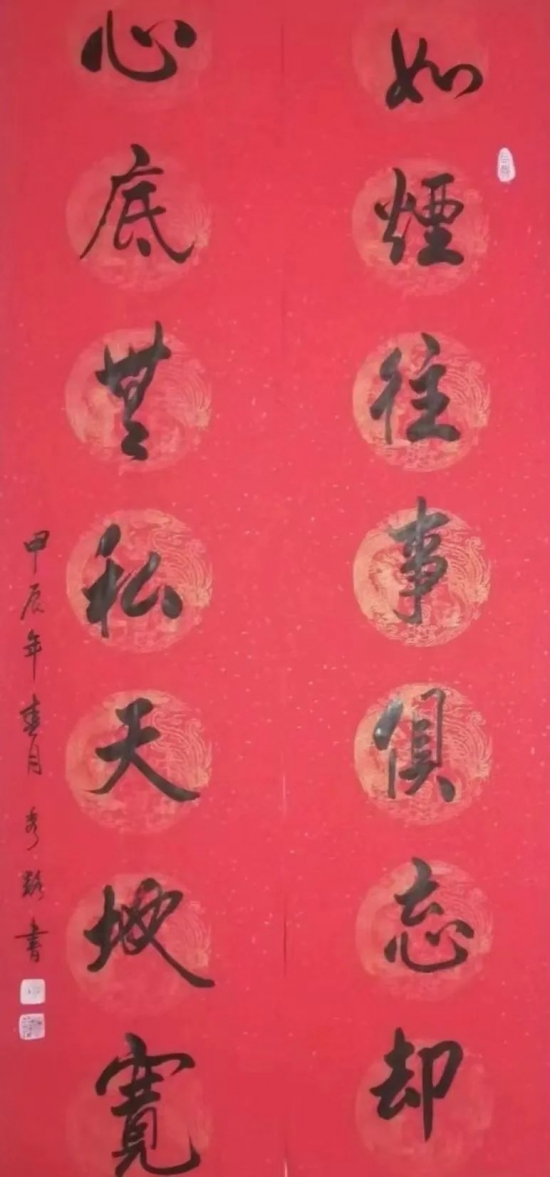 如煙往事俱忘却
心底無私天地寬
甲辰年春月 秀
書